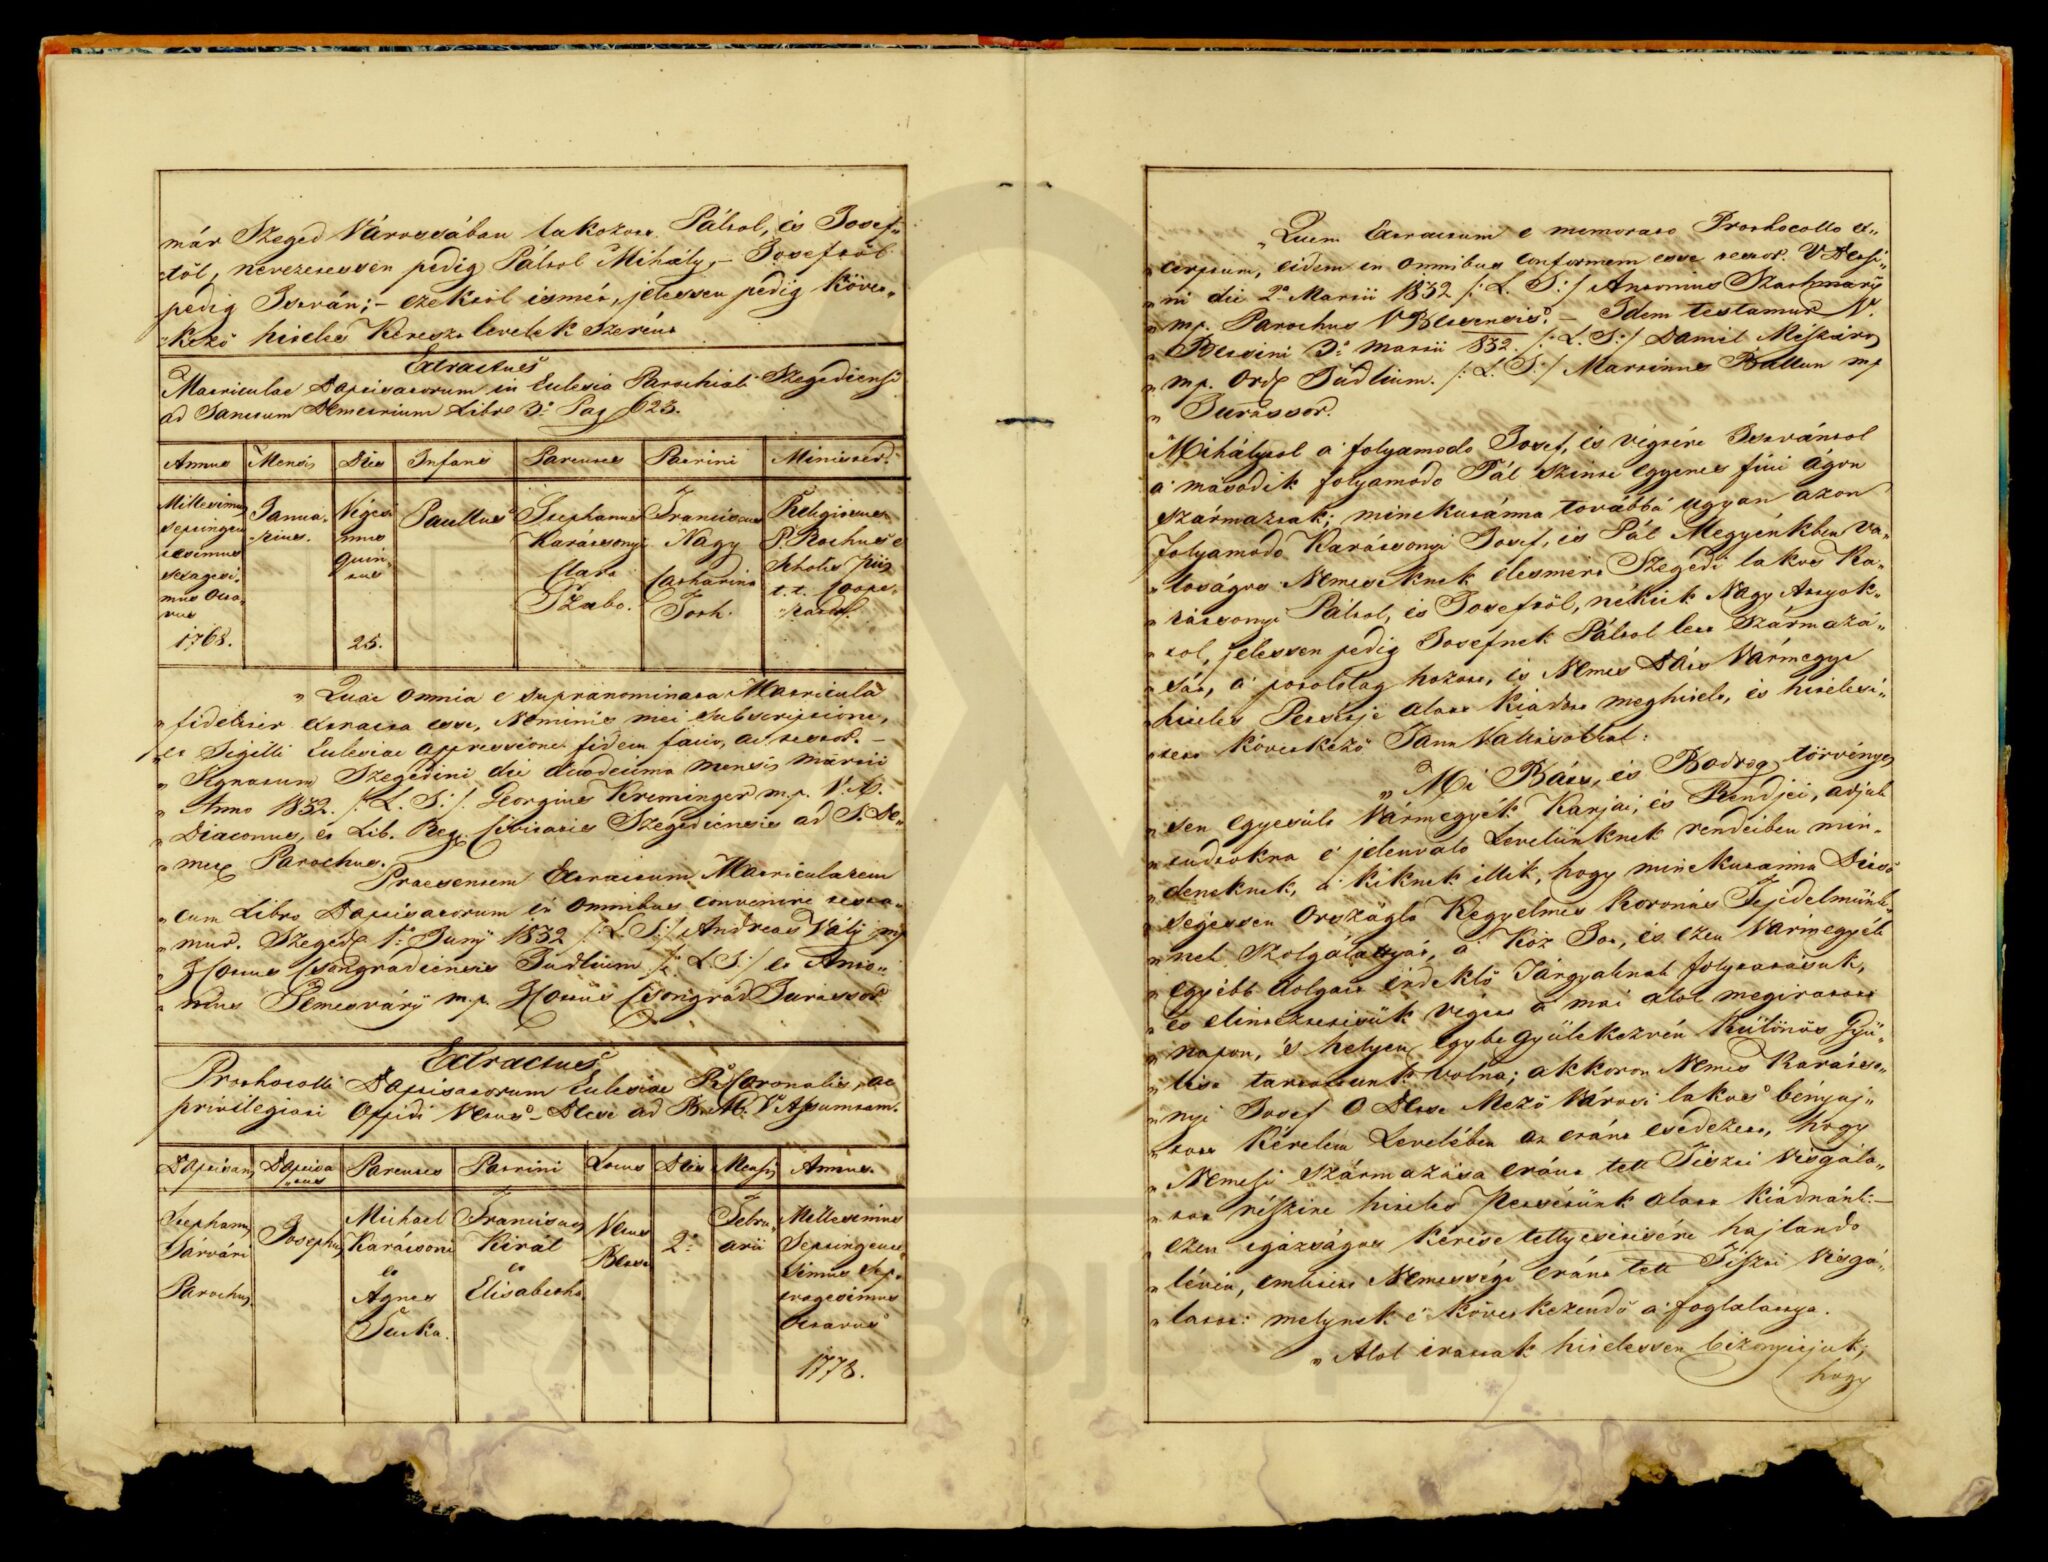 már Szeged Várossában lakozott Páltol, és Josef„
től, nevezetessen pedig Páltol Mihály, – Joseftöl
pedig István; – ezektöl ismét, jelessen pedig Követ„
„kező hiteles Kereszt levelek szerént
Extractus
Matriculae Baptisatorum in Eclesia Parochiali Szegediensi
ad Sanctum Demetrium Libro 3o Pag 623.
Annus Mensis Dies Infans Parentes Patrini Minister
Millesimus septingentesimus sexagesimus octavus 1768. Januarius. Vigesimus quintus 25. Paullus Stephanus Karátsonyi Clara Szabo. Franciscus Nagy Catharina Toth. Religiosus P. Rochus e Scholis piis t. t. Cooperator.
„ Quae omnia e supranominata Matricula
„ fideliter extracta esse, Nominis mei subscriptione,
„ et Sigilli Eclesiae appressione fidem facio, ac testor. –
„ Signatum Szegedini die duodecima mensis martii
„ Anno 1832. /: L. S: /. Georgius Kreminger m. p. V. A.
„ Diaconus, et Lib. Reg. Civitatis Szegediensis ad S. De„
„ met Parochus.
Praesentem Extractum Matricularem
„ cum Libro Baptisatorum in omnibus convenire testa„
„ mur. Szegéd 1o Juny 1832 /: L. S: / Andreas Válj mp
„ I. Cottus Csongrádiensis Judlium /: L. S: / et Anto„
„ nius Temesváry m. p. I. Cottus Csongrád Jurassor
Extractus
Prothocolli Baptisatorum Eclesiae R. Coronalis, ac
privilegiati Oppidi Vetus – Betse ad B. M. V. Assumtam.
Baptisans Baptisatus Parentes Patrini Locus Dies Mensis Annus
Stephanus Sárvári Parochus. Josephus Michael Karátsoni et Agnes Tsuka. Franciscus Király et Elisabetha Vetus Betse 2a Februarii Millesimus Septingentesimus septuagesimus octavus 1778.
„ Quem Extractum e memorato Prothocollo ex„
„ cerptum, eidem in omnibus conformem esse testor. V Betsi„
„ ni die 2a Martii 1832 /: L. S: / Antonius Szathmáry
„ mp. Parochus V Betsensis. – Idem testamur V.
„ Betsini 3a martii 832. /: L. S: / Daniel Miskáro
„ mp. Ord Judlium. /: L. S: / Martinus Ballun mp
„ Jurassor.
Mihálytol a' folyamodo Josef, és végtére Istvántol
a' masodik folyamodo Pál szinte egyenes fiúi ágon
származtak; minekutánna továbbá ugyan azon
folyamodo Karátsonyi Josef, és Pál Megyénkben va„
„ loságos Nemeseknek élesmért Szegedi lakos Ka„
„ rátsonyi Páltol, és Joseftöl, nékiek Nagy Attyok„
„ tol, jelessen pedig Josefnek Páltol lett származá„
„ sát, a' potololag hozott, és Nemes Báts Vármegye
hiteles Petsétje alatt kiadott meghitelt, és hitelesi„
„ tett következő Tanu Vallásokkal:
„ Mi Báts, és Bodrog törvénye„
„ sen egyesült Vármegyék Karjai, és Rendjei, adjuk
„ tudtokra e' jelenvaló Levelünknek rendeiben min„
deneknek, a' kiknek illik, hogy minekutánna Ditső
„ ségessen Országló Kegyelmes Koronás Fejedelmünk„
„ nek szolgálattyát, a' Köz Jot, és ezen Vármegyék
„ egyébb dolgait érdeklő Tárgyaknak folytatásuk,
„ és elintéztetésük véget a' mai alol megiratott
„ napon, és helyen egybe gyülekezvén Különös Gyü„
„ lést tartottunk volna; akkoron Nemes Karátso„
„ nyi Josef O Betse Mező Városi lakos bényuj„
„ tott Kérelem Levelében az eránt esedezett, hogy
„ Nemesi származása eránt tett Tiszti Visgála„
„ tot részire hiteles Petsétünk alatt kiadnánk: –
ezen igazságos kérése tellyesitésére hajlando
„ lévén, emlitett Nemessége eránt tett Tiszti Visgá„
„ latot: melynek é' következendő a' foglalattya.
„ Alol irattak hitelessen bizonyítjuk,
hogy